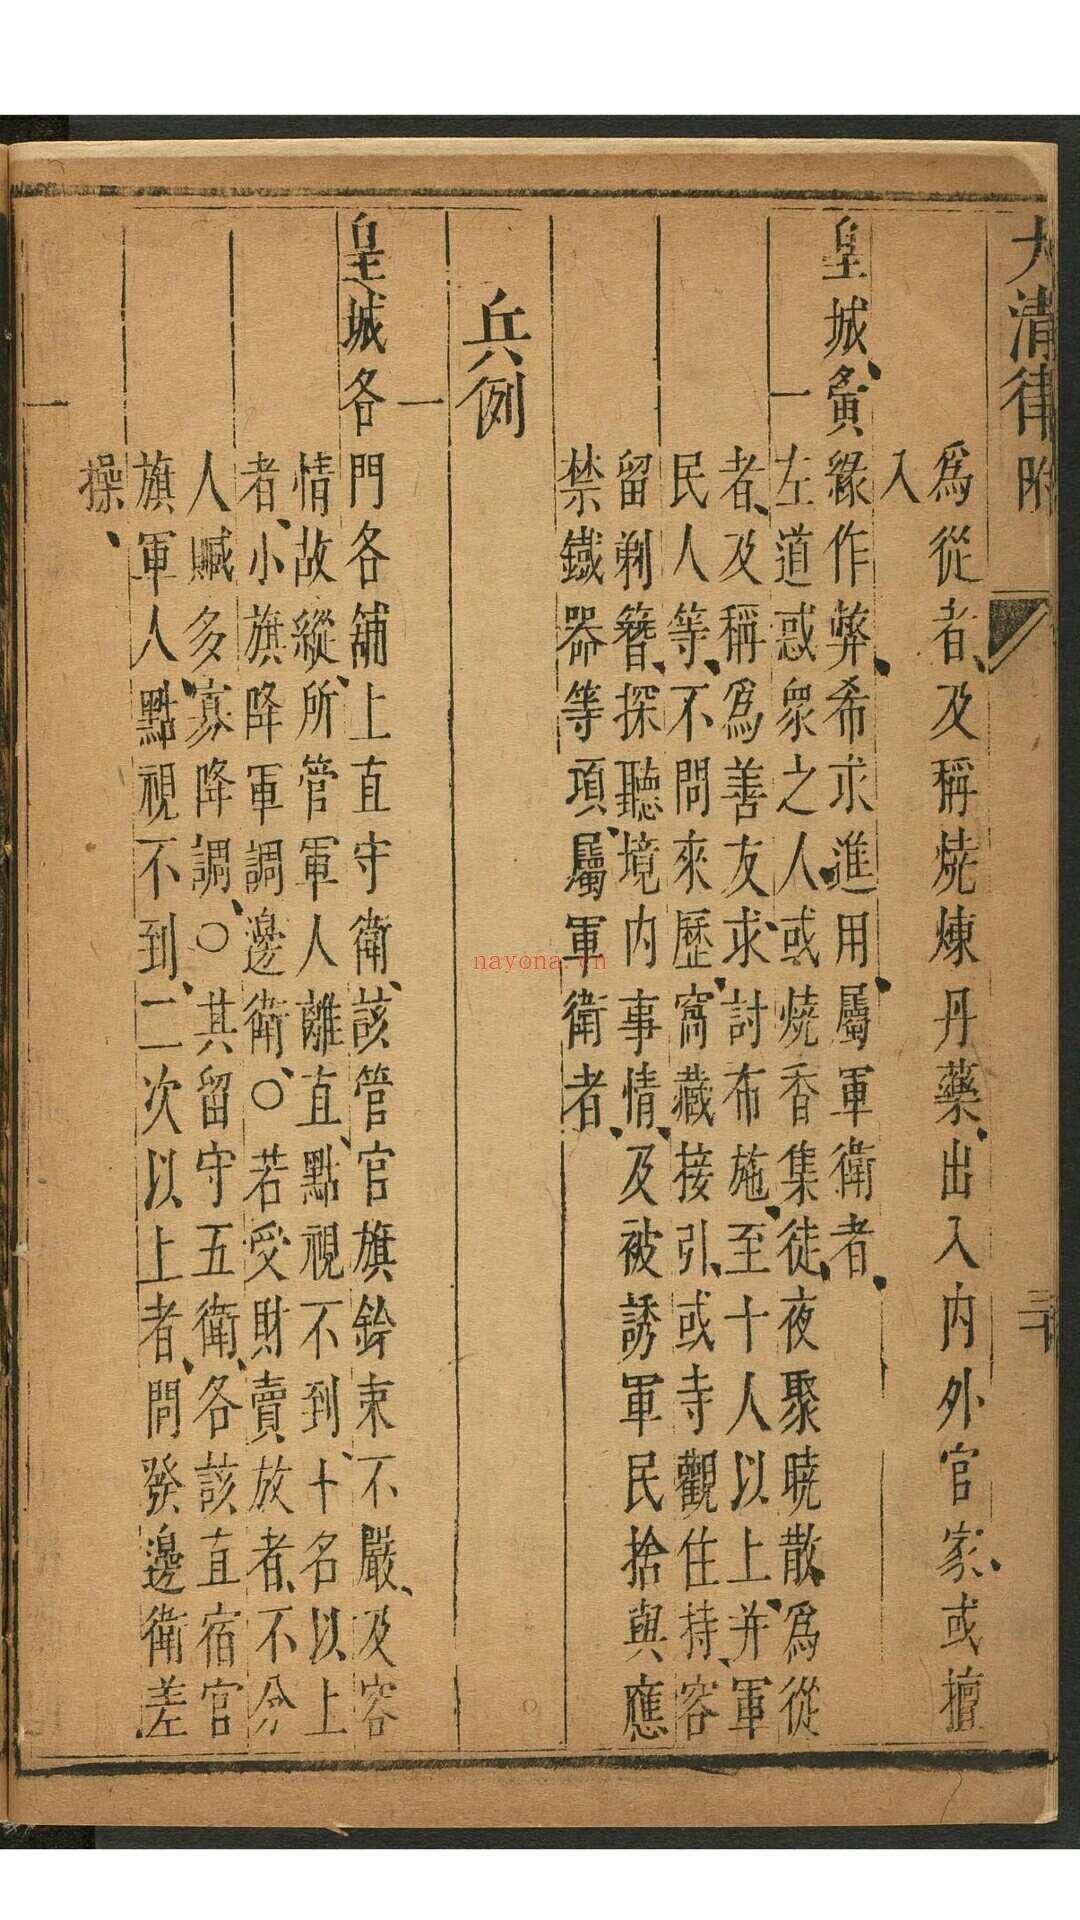 大清律附
三十
爲從者、及稱燒煉丹藥、出入内外官家、或擅
入
皇城、夤緣作弊、希求進用、屬軍衛者、
一左道惑衆之人、或燒香集徒、夜聚曉散、爲從
者、及稱爲善友、求討布施、至十人以上、并軍
民人等、不問來歷、窩藏接引、或寺觀住持、容
留剃簪、探聽境内事情、及被誘軍民捨與應
禁鐵器等項、屬軍衛者、
兵例
一
皇城各門各舖上直守衛、該管官旗鈐束不嚴、及容
情故縱、所管軍人離直、點視不到、十名以上
者、小旗降軍調邊衛、○若受財賣放者、不分
人贓多寡降調、○其留守五衛、各該直宿官
旗軍人、點視不到、二次以上者、問發邊衛差
操、
一
nayona.cn